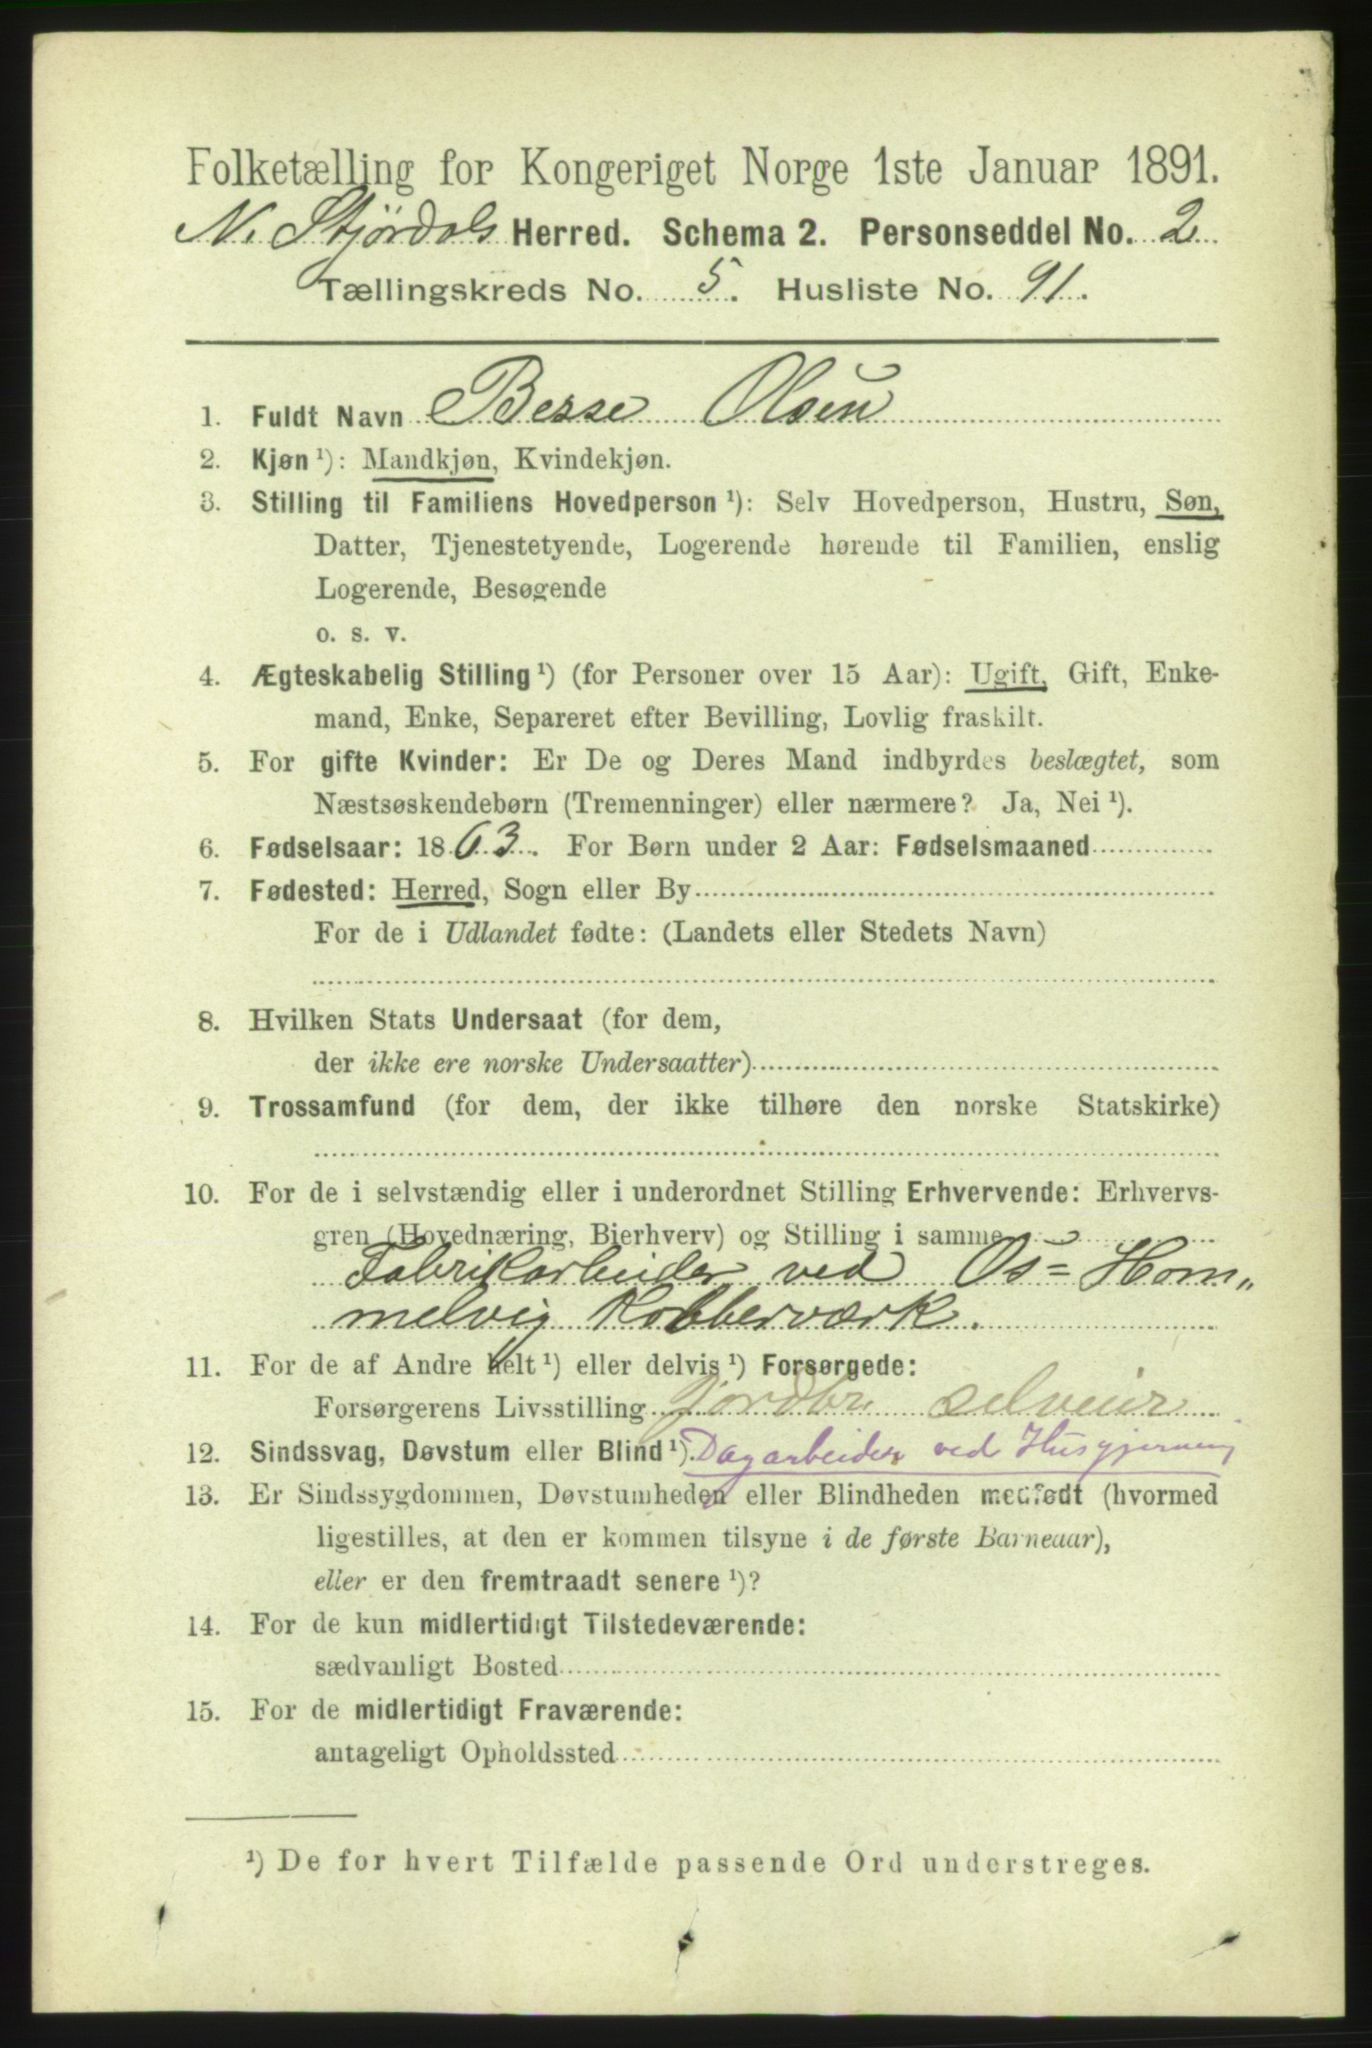 Folketælling for Kongeriget Norge 1ste Januar 1891.
N. Stjørdals Herred. Schema 2. Personseddel No. 2
Tællingskreds No. 5. Husliste No. 91.
1. Fuldt Navn Besse Olsen
2. Kjøn ¹): Mandkjøn, Kvindekjøn.
3. Stilling til Familiens Hovedperson ¹): Selv Hovedperson, Hustru, Søn,
Datter, Tjenestetyende, Logerende hørende til Familien, enslig
Logerende, Besøgende
o. s. v.
4. Ægteskabelig Stilling ¹) (for Personer over 15 Aar): Ugift, Gift, Enke-
mand, Enke, Separeret efter Bevilling, Lovlig fraskilt.
5. For gifte Kvinder: Er De og Deres Mand indbyrdes beslægtet, som
Næstsøskendebørn (Tremenninger) eller nærmere? Ja, Nei ¹).
6. Fødselsaar: 1863. For Børn under 2 Aar: Fødselsmaaned
7. Fødested: Herred, Sogn eller By
For de i Udlandet fødte: (Landets eller Stedets Navn)
8. Hvilken Stats Undersaat (for dem,
der ikke ere norske Undersaatter)
9. Trossamfund (for dem, der ikke tilhøre den norske Statskirke)
10. For de i selvstændig eller i underordnet Stilling Erhvervende: Erhvervs-
gren (Hovednæring, Bierhverv) og Stilling i samme
Fabrikarbeider ved Os= Hom„
melvig Kobberværk.
11. For de af Andre helt ¹) eller delvis ¹) Forsørgede:
Forsørgerens Livsstilling Jordbr. selveier
12. Sindssvag, Døvstum eller Blind ¹). Dagarbeider ved Husgjerning
13. Er Sindssygdommen, Døvstumheden eller Blindheden medfødt (hvormed
ligestilles, at den er kommen tilsyne i de første Barneaar),
eller er den fremtraadt senere ¹)?
14. For de kun midlertidigt Tilstedeværende:
sædvanligt Bosted
15. For de midlertidigt Fraværende:
antageligt Opholdssted
¹) De for hvert Tilfælde passende Ord understreges.